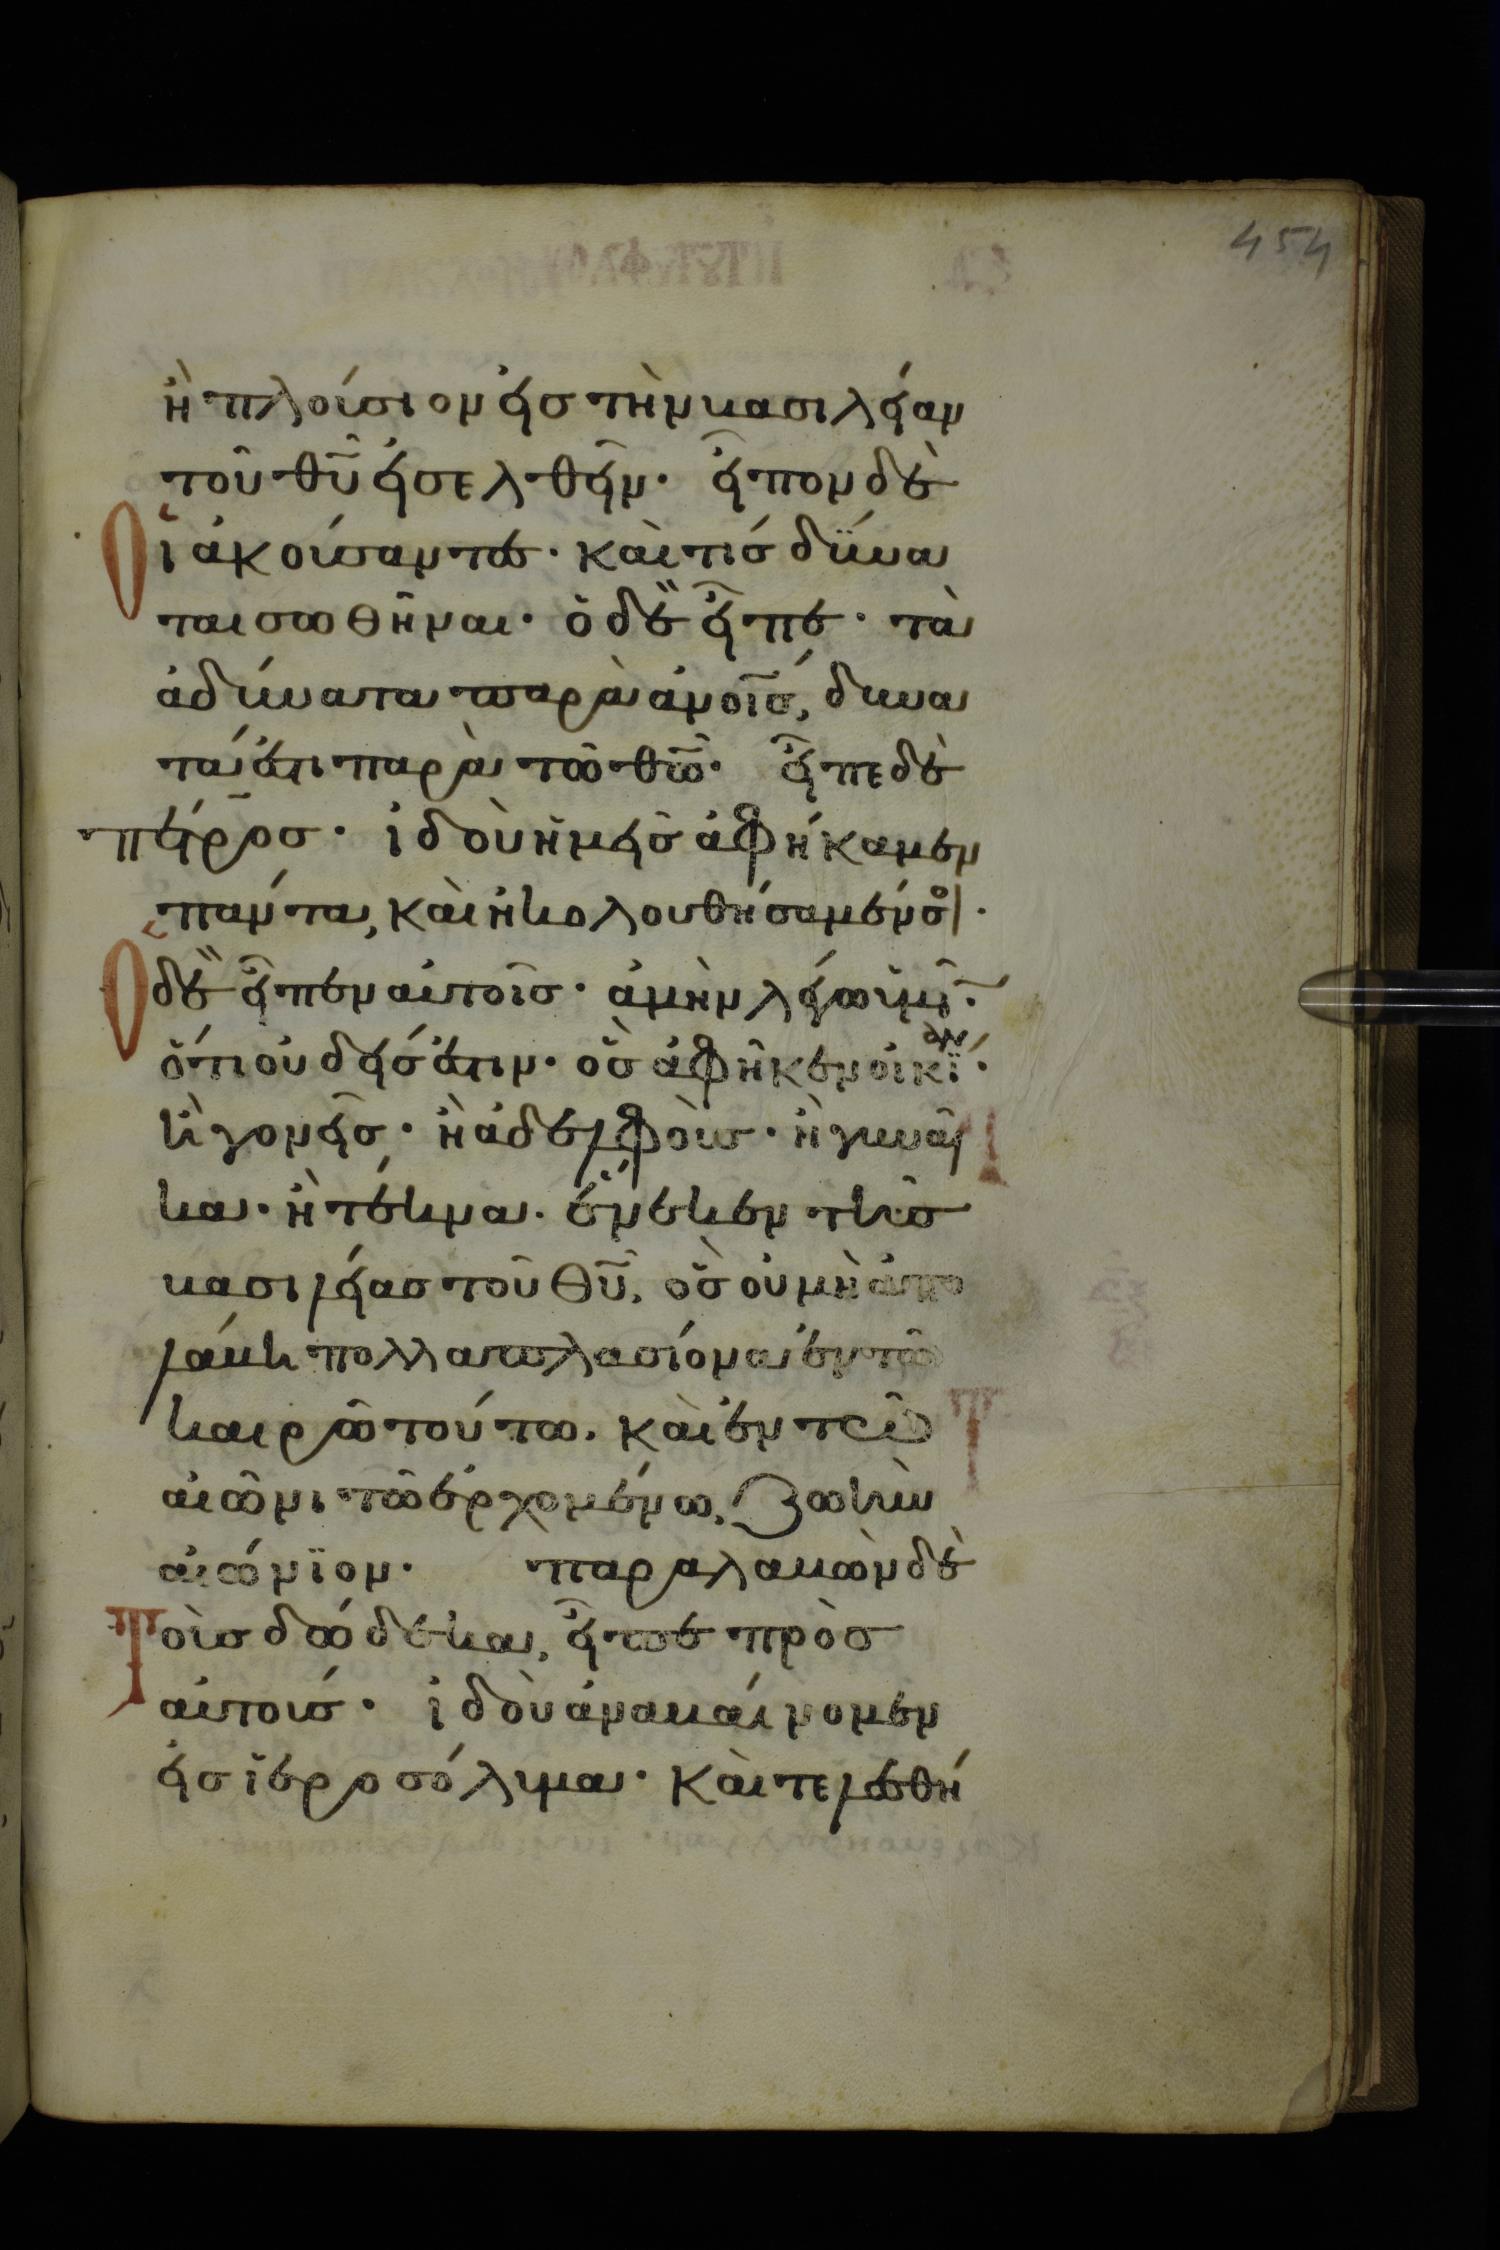 454
ἢ πλούσιον εἰς τὴν βασιλείαν
τοῦ θῦ εἰσελθεῖν· εἶπον δὲ
Οἱ ἀκούσαντες· καὶ τίς δύνα
ται σωθῆναι· ὁ δὲ εἶπε· τὰ
ἀδύνατα παρὰ ἀνοῖς, δυνα
τά ἐστι παρὰ τῶ θῶ· εἶπε δὲ
πέτρος· ἰδοὺ ἡμεῖς ἀφήκαμεν
πάντα, καὶ ἠκολουθήσαμέν σοι·
Ὁ δὲ εἶπεν αὐτοῖς· ἀμὴν λέγω ὑμῖ·
ὅτι οὐδείς ἐστιν· ὃς ἀφῆκεν οἰκίαν·
ἢ γονεῖς· ἢ ἀδελφοὺς· ἢ γυναῖ
κα· ἢ τέκνα· ἕνεκεν τῆς
βασιλείας τοῦ θῦ, ὃς οὐ μὴ ἀπο
λάβη πολλαπλασίονα ἐν τῶ
καιρῶ τούτω, καὶ ἐν τῶ
αἰῶνι τῶ ἐρχομένω, ζωὴν
αἰώνϊον· παραλαβὼν δὲ
Τοὺς δώδεκα, εἶπε πρὸς
αὐτούς· ἰδοὺ ἀναβαίνομεν
εἰς ἱεροσόλυμα· καὶ τελεσθή